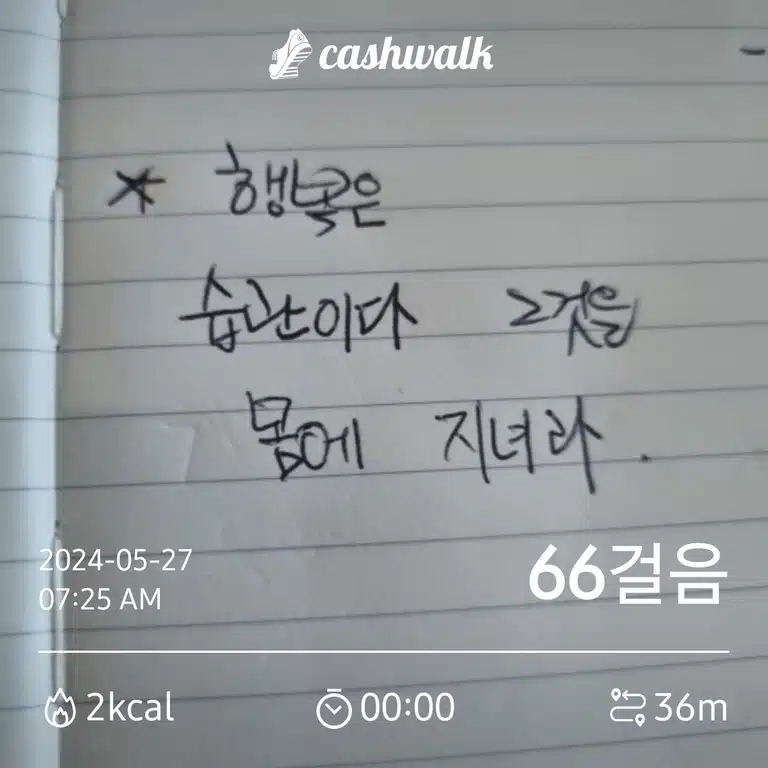 cashwalk
* 행복은
습관이다 그것을
몸에 지녀라.
2024-05-27
07:25 AM
66걸음
2kcal 00:00 36m